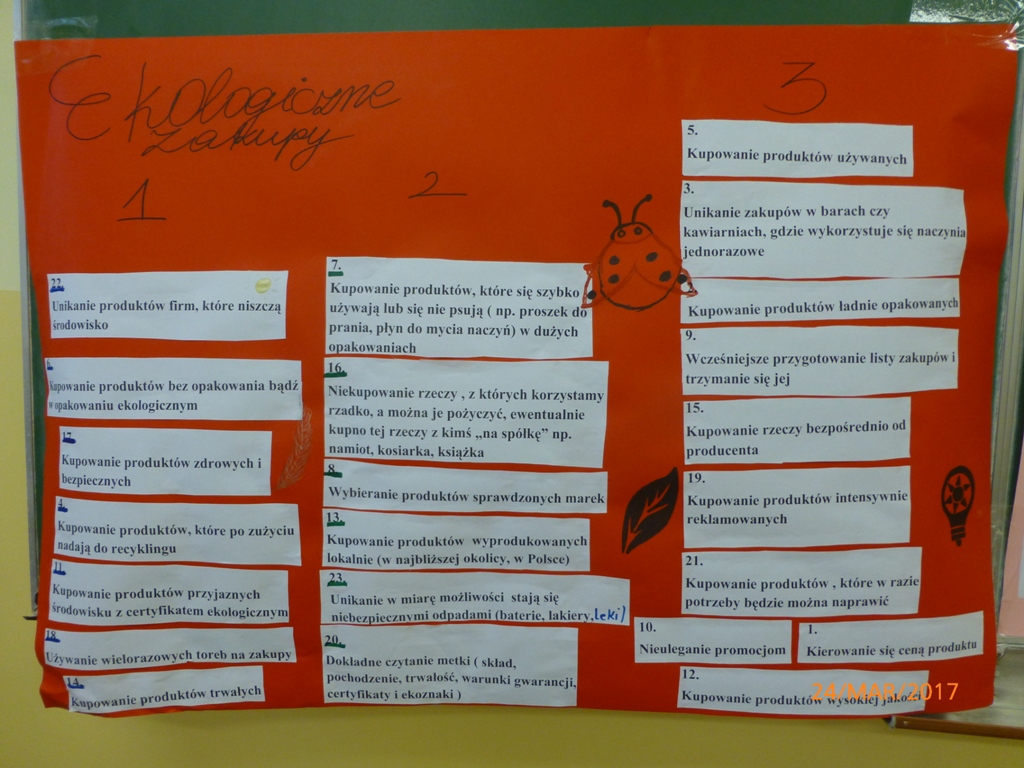 Ekologiczne
zakupy
1
22.
Unikanie produktów firm, które niszczą
środowisko
Kupowanie produktów bez opakowania bądź
w opakowaniu ekologicznym
17.
Kupowanie produktów zdrowych i
bezpiecznych
4.
Kupowanie produktów, które po zużyciu
nadają do recyklingu
11.
Kupowanie produktów przyjaznych
środowisku z certyfikatem ekologicznym
18.
Używanie wielorazowych toreb na zakupy
14.
Kupowanie produktów trwałych
2
7.
Kupowanie produktów, które się szybko
używają lub się nie psują ( np. proszek do
prania, płyn do mycia naczyń) w dużych
opakowaniach
16.
Niekupowanie rzeczy , z których korzystamy
rzadko, a można je pożyczyć, ewentualnie
kupno tej rzeczy z kimś „na spółkę” np.
namiot, kosiarka, książka
8.
Wybieranie produktów sprawdzonych marek
13.
Kupowanie produktów wyprodukowanych
lokalnie (w najbliższej okolicy, w Polsce)
23.
Unikanie w miarę możliwości stają się
niebezpiecznymi odpadami (baterie, lakiery, leki)
20.
Dokładne czytanie metki ( skład,
pochodzenie, trwałość, warunki gwarancji,
certyfikaty i ekoznaki )
3
5.
Kupowanie produktów używanych
3.
Unikanie zakupów w barach czy
kawiarniach, gdzie wykorzystuje się naczynia
jednorazowe
Kupowanie produktów ładnie opakowanych
9.
Wcześniejsze przygotowanie listy zakupów i
trzymanie się jej
15.
Kupowanie rzeczy bezpośrednio od
producenta
19.
Kupowanie produktów intensywnie
reklamowanych
21.
Kupowanie produktów , które w razie
potrzeby będzie można naprawić
10.
Nieuleganie promocjom
1.
Kierowanie się ceną produktu
12.
Kupowanie produktów wysokiej jakości
24/MAR/2017